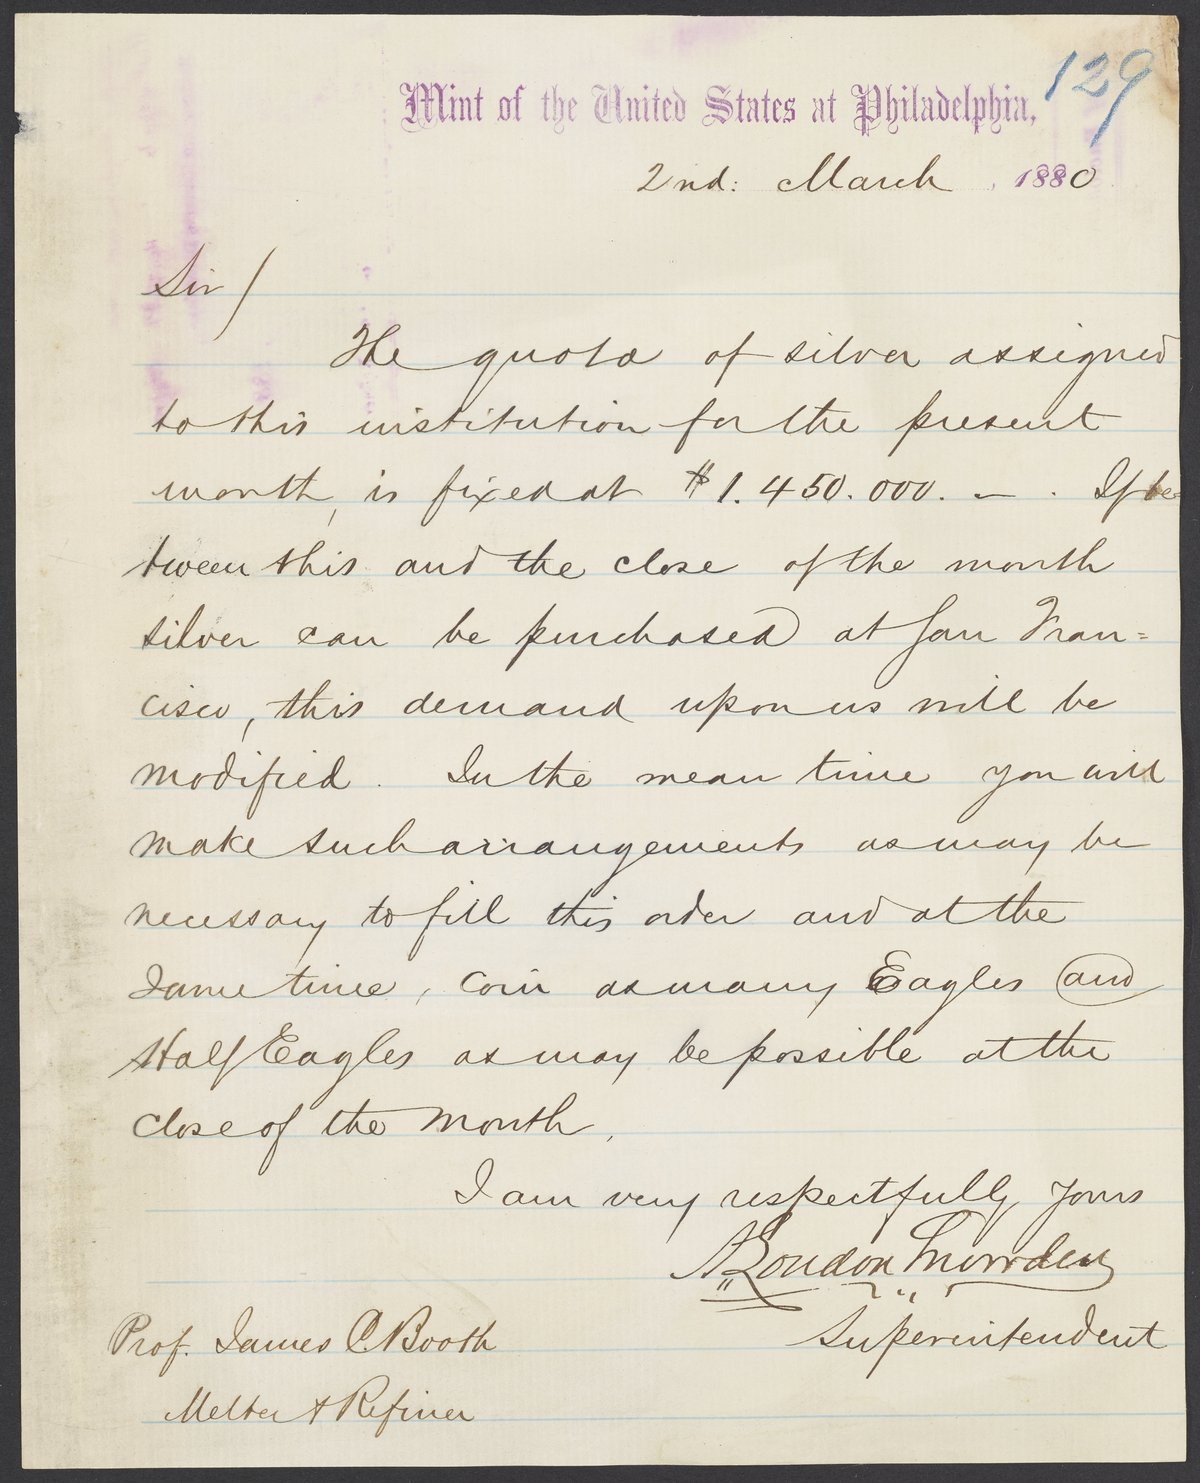 129
Mint of the United States at Philadelphia,
2nd: March, 1880
Sir /
The quota of silver assigned
to this institution for the present
month, is fixed at $1.450.000. — . If be=
tween this and the close of the month
silver can be purchased at San Fran=
cisco, this demand upon us will be
modified. In the mean time you will
make such arrangements as may be
necessary to fill this order and at the
same time, coin as many Eagles and
Half Eagles as may be possible at the
close of the month.
I am very respectfully yours
A Loudon Snowden
Superintendent
Prof. James C. Booth
Melter & Refiner